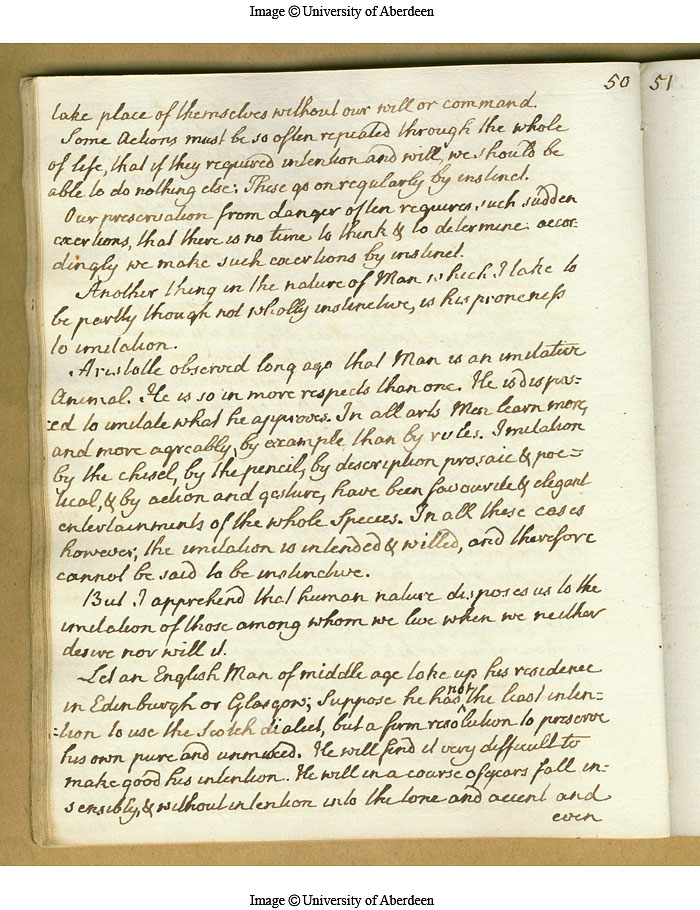 Image © University of Aberdeen
50 51
take place of themselves without our will or command.
Some Actions must be so often repeated through the whole
of life, that if they required intention and will, we should be
able to do nothing else: These go on regularly by instinct.
Our preservation from danger often requires such sudden
exertions, that there is no time to think & to determine: accor-
dingly we make such exertions by instinct.
Another thing in the nature of Man which I take to
be partly though not wholly instinctive, is his proneness
to imitation.
Aristotle observed long ago that Man is an imitative
Animal. He is so in more respects than one. He is dispos=
=ed to imitate what he approves. In all arts Men learn more,
and more agreably, by example than by rules. Imitation
by the chisel, by the pencil, by description prosaic & poe=
tical, & by action and gesture, have been favourite & elegant
entertainments of the whole Species. In all these cases
however, the imitation is intended & willed, and therefore
cannot be said to be instinctive.
But I apprehend that human nature disposes us to the
imitation of those among whom we live when we neither
desire nor will it.
Let an English Man of middle age take up his residence
in Edinburgh or Glasgow; Suppose he has not the least inten=
=tion to use the Scotch dialect, but a firm resolution to preserve
his own pure and unmixed. He will find it very difficult to
make good his intention. He will in a course of years fall in-
sensibly, & without intention into the tone and accent and
even
Image © University of Aberdeen